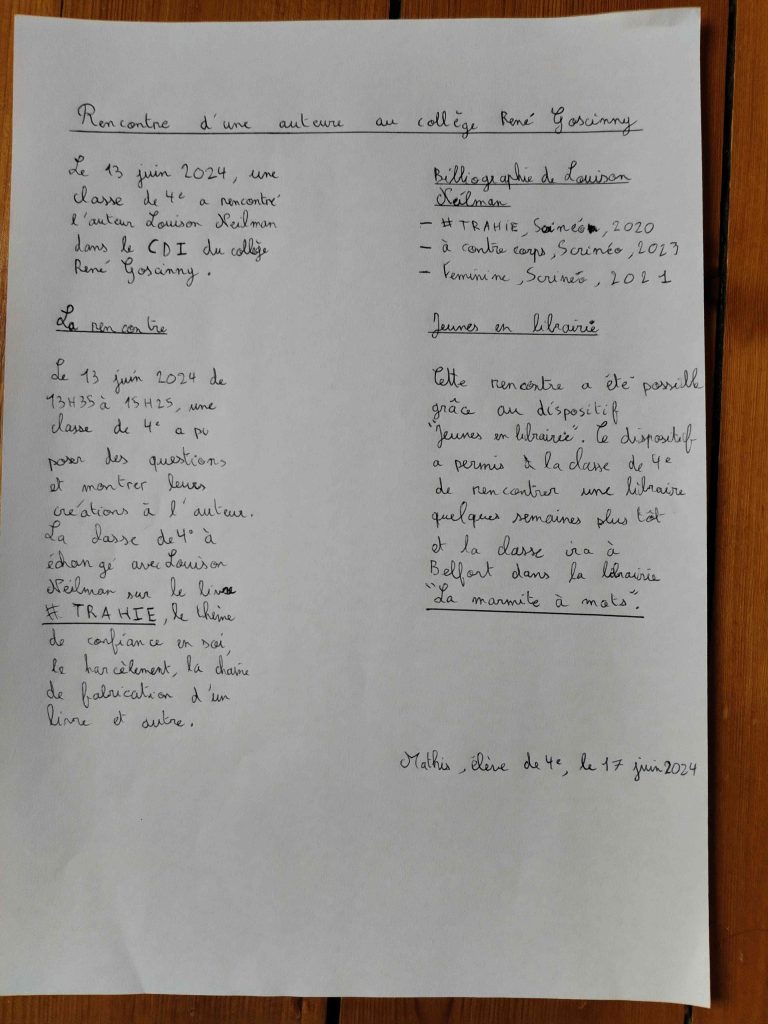 Rencontre d'une auteure au collège René Goscinny
Le 13 juin 2024, une
classe de 4e a rencontré
l'auteur Louison Neilman
dans le CDI du collège
René Goscinny.
La rencontre
Le 13 juin 2024 de
13H35 à 15H25, une
classe de 4e a pu
poser des questions
et montrer leurs
créations à l'auteur.
La classe de 4e à
échangé avec Louison
Neilman sur le livre
# TRAHIE, le thème
de confiance en soi,
le harcèlement, la chaine
de fabrication d'un
livre et autre.
Billiographie de Louison
Neilman
- # TRAHIE, Scrinéo, 2020
- à contre corps, Scrinéo, 2023
- Feminine, Scrinéo, 2021
Jeunes en librairie
Cette rencontre a été possible
grâce au dispositif
"Jeunes en librairie". Ce dispositif
a permis à la classe de 4e
de rencontrer une libraire
quelques semaines plus tôt
et la classe ira à
Belfort dans la librairie
"La marmite à mots".
Mathis, élève de 4e, le 17 juin 2024